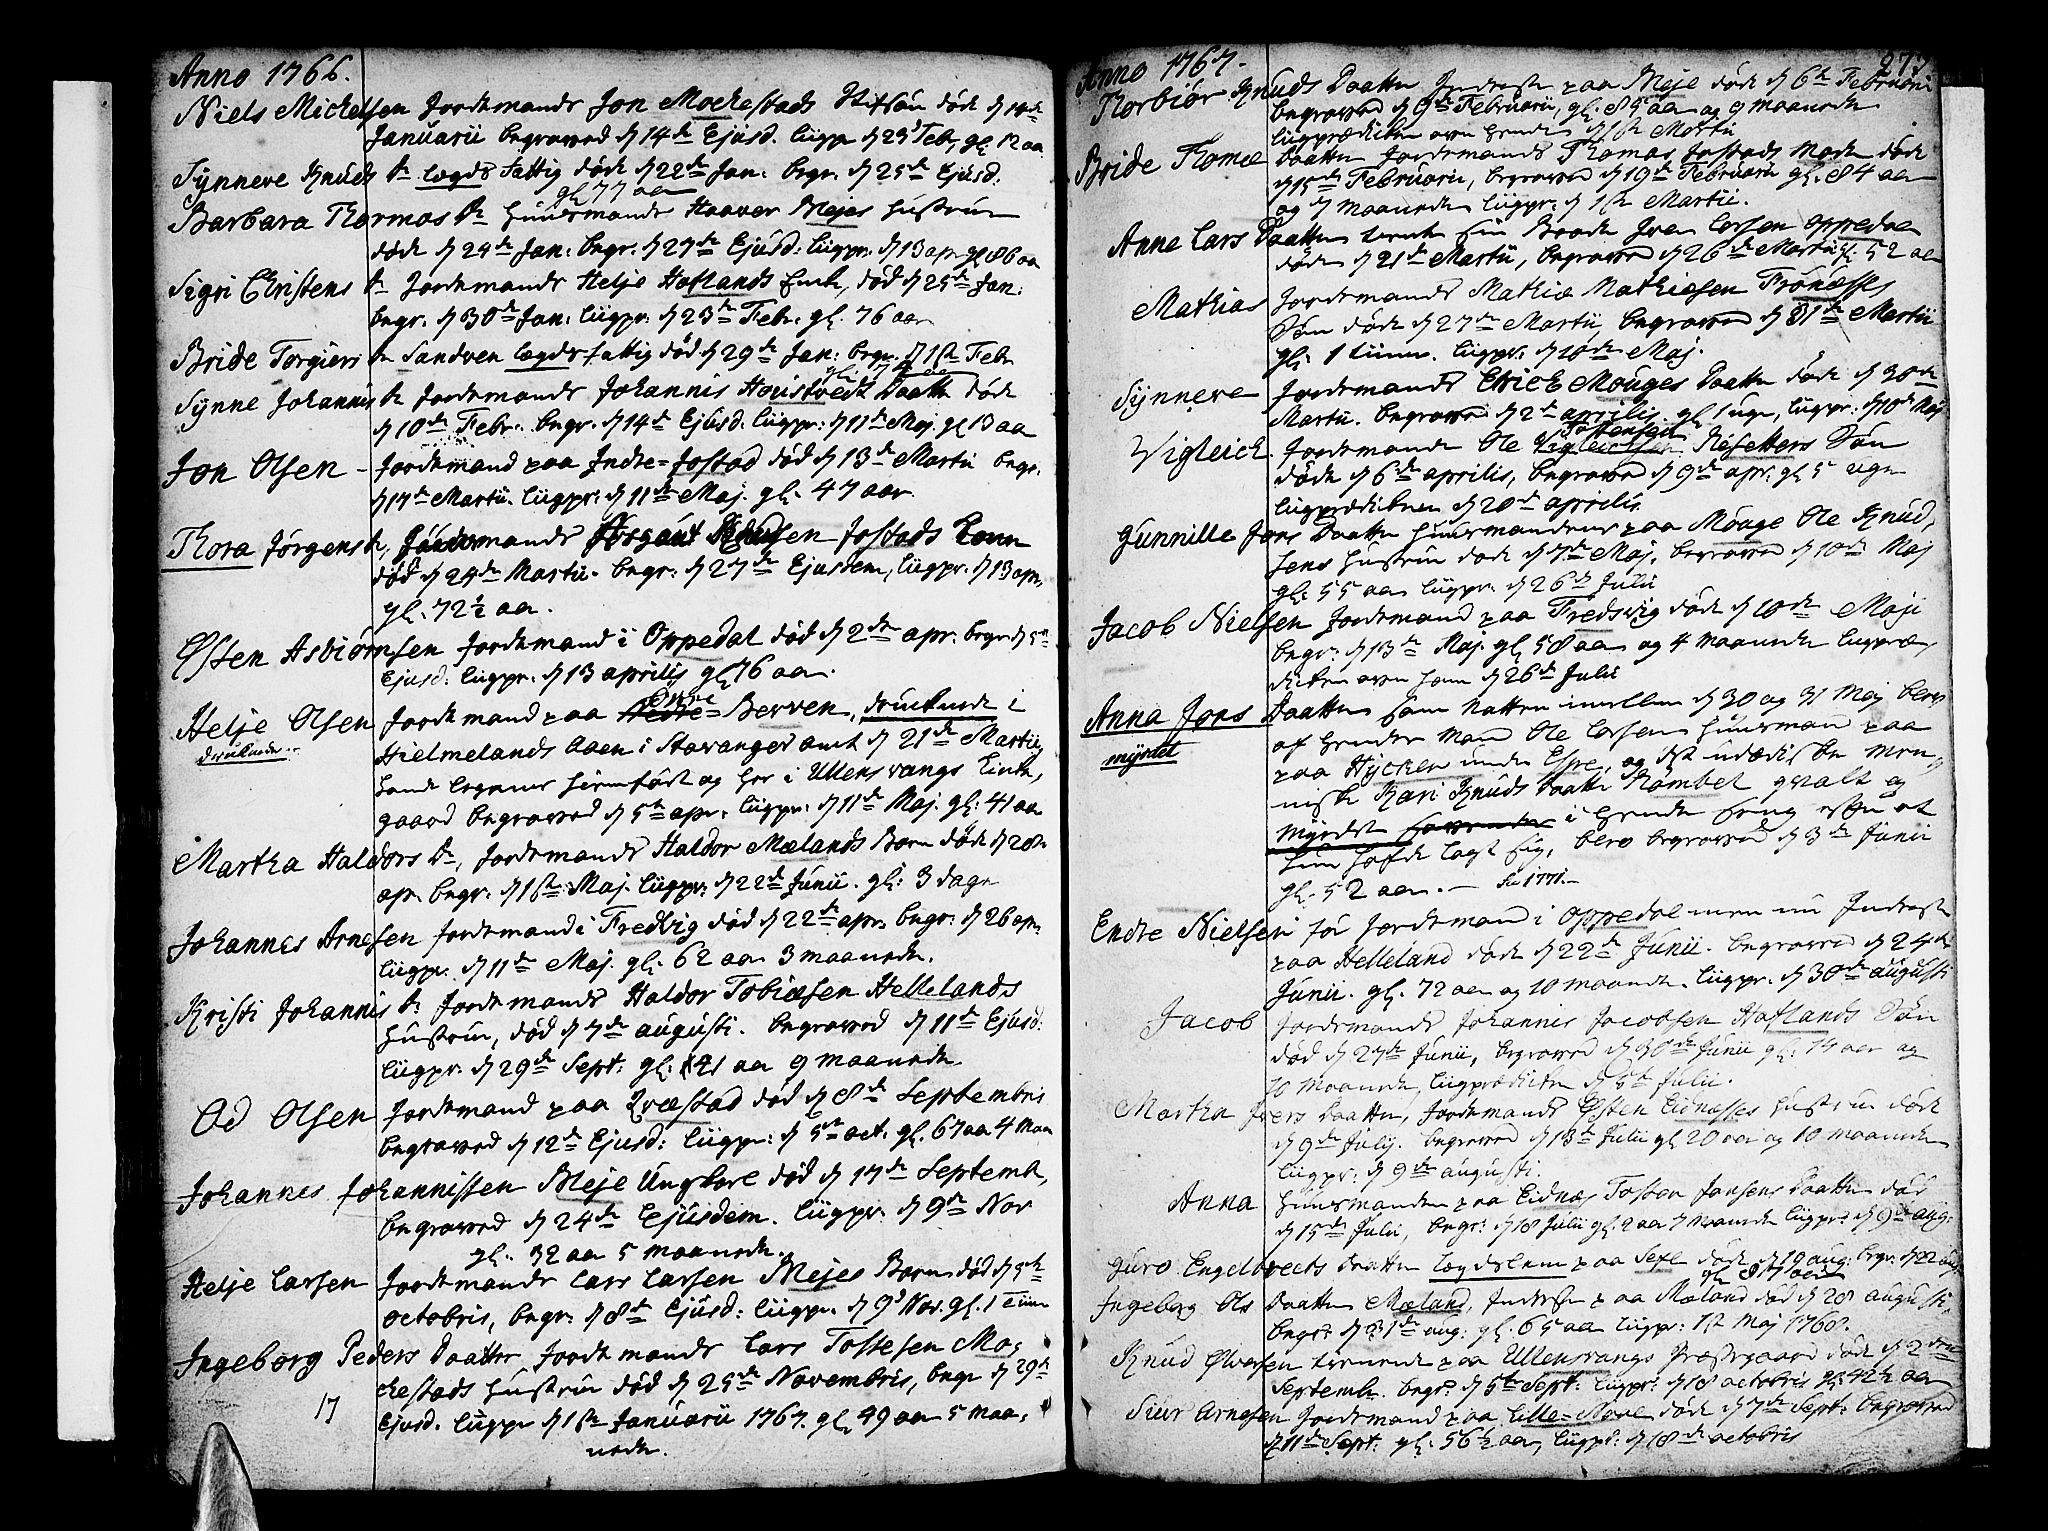 Anno 1766.
Niels Mickelsen Jordemands Jon Mockestads Stifsøn døde d 10de
Januarii begraved d 14de Ejusd. liigpr d 23 Feb. gl. 12 aar
Sÿnneve Knuds dr lægds fattig døde d 22de Jan: begr. d 25de Ejusd:
gl. 77 aar
Barbara Thormos dr Huusmands Haaver Mejes Hustrue
døde d 24de Jan: begr. d 27de Ejusd: liigpr: d 13 apr gl 86 aar
Sigri Christens dr Jordemands Helje Hoflands Enke, død d 25de Jan:
begr. d 30de Jan: liigpr: d 23de Febr. gl. 76 aar
Bride Torgieri dr Sandven lægds-fattig død d 29de Jan: begr. d 1ste Febr
gl. 74 aar
Sÿnne Johannis dr Jordemands Johannis Houstvedt Daatter døde
d 10de Febr. begr. d 14de Ejusd: liigpr: d 11te Maj. gl 13 aar
Jon Olsen - Jordemand paa Indre-Jostad død d 13de Martii begr.
d 17de Martii. liigpr: d 11te Maj. gl. 47 aar.
Thora Jørgens dr, Jordemands Knudsen Jostads Kone
død d 24de Martii. begr: d 27de Ejusdem, liigpr. d 13 apr.
gl. 72½ aar.
Østen Asbiørnsen Jordemand i Oppedal død d 2den apr: begr d 5te
Ejusd: liigpr. d 13 aprilis gl 76 aar.
Helje Olsen Jordemand paa Nedre Øvre = Berven, druknede i
druknede
Hielmelands Aaen i Stavanger amt d 21de Martii,
hands legeme hiemført og her i Ullensvangs Kirke,
gaard begraved d 5te apr. liigpr: d 11te Maj. gl: 41 aar
Martha Haldors Dr, Jordemands Haldor Mælands Barn døde d 28de
apr. begr: d 1ste Maj. liigpr: d 22de Junii. gl: 3 dage
Johannes Arnesen Jordemand i Tredvig død d 22de apr. begr: d 26 apr.
liigpr. d 11te Maj. gl. 62 aar 3 maaneder.
Kristi Johannis dr Jordemands Haldor Tobiæsen Hellelands
Hustrue, død d 7de augusti. begraved d 11te Ejusd:
liigpr. d 29de Sept: gl: 41 aar 9 maaneder
Od Olsen Jordemand paa Qvæstad død d 8de Septembris
begraved d 12de Ejusd: liigpr: d 5te oct. gl. 67 aar 4 Maan
Johannes Johannissen Meje Ungkarl død d 17de Septemb,
begraved d 24de Ejusdem. liigpr. d 9de Nov
gl. 32 aar 5 maaneder.
Helje Larsen Jordemands Lars Larsen Mejes Barn død d 5te
octobris, begr: d 8de Ejusd: liigpr. d 9 Nov. gl. 1 Time
Ingeborg Peders Daatter Jordemands Lars Tostesen Mo,
ckestads Hustrue død d 25de Novembris, begr d 29de
17
Ejusd. liigpr d 1ste Januarii 1767. gl 49 aar 5 maa,
neder.
Anno 1767.
277
Thorbiør Knuds Daatter Inderste paa Meje døde d 6te Februarii
begraved d 9de Februarii, gl. 85 aar og 9 maaneder
liigprædiken over hende d 1ste Martii
Bride Thomæ Daatter Jordemands Thomas Jostads Moder døde
d 15de Februarii, begraved d 19de Februarii gl. 84 aar
og 7 maaneder liigpr: d 1ste Martii.
Anne Lars Daatter tient sin Broder Iver Larsen Oppedal
døde d 21de Martii, begraved d 26de Martii gl: 52 aar
Mathias Jordemands Mathiæ Mathiæsen Trønæsses
Søn døde d 27de Martii, begraved d 31te Martii
gl: 1 time. liigpr: d 10de Maj.
Sÿnneve Jordemands Erick Mouges Daatter døde d 30de
Martii. begraved d 2den aprilis. gl 1 uge, liigpr: d 10de Maj
Vigleick Jordemands Ole Vigleicksen Tostensen Røsetters Søn
døde d 6te aprilis, begraved d 9de apr: gl 5 uger
liigprædiken d 20de aprilis
Gunnille Jons Daatter Huusmandens paa Mouge Ole Knud,
sens Hustrue døde d 7de Maj. begraved d 10de Maj
gl: 55 aar liigpr: d 26de Julii
Jacob Nielsen Jordemand paa Tredsvig døde d 10de Maji
begr: d 13de Maj. gl 58 aar og 4 maaneder liigpræ,
diken over ham d 26de Julii
Anna Jons Daatter som Natten imellem d 30 og 31 Maj blev
myrdet
af hendes Mand Ole Larsen Huusmand paa
paa Hÿcken under Espe, og det udædiske Men,
niske Kari Knuds Daatter Rombet qvalt og
myrdet i hendes seng efter at
hun hafde lagt sig, blev begraved d 3de Junii
gl. 52 aar. - 1771.-
Endre Nielsen før Jordemand i Oppedal men nu Inderste
paa Helleland døde d 22de Junii. begraved d 24de
Junii. gl. 72 aar og 10 maaneder. liigpr. d 30de augusti
Jacob Jordemands Johannis Jacobsen Hoflands Søn
død d 27de Junii, begraved d 30de Junii gl: 14 aar og
10 maaneder, liigprædiken d 5te Julii.
Martha Ivers Daatter, Jordemands Østen Eidnæsses Hustrue døde
d 9de Julij. begraved d 13de Julii gl 20 aar og 10 maaneder
liigpr: d 9de augusti.
Anna Huusmanden paa Eidnæs Tosten Jonsens Daatter død
d 15de Julii, begr: d 18 Julii gl: 2 aar 7 maaneder liigpr: d 9de aug:
Guro Engelbrects Daatter lægdslem paa Sexe døde d 19 aug: begr: d 22 aug
gl 87 aar
Ingeborg Ols Daatter Mæland, Inderste paa Mæland død d 28 augusti.
begr: d 31te aug: gl. 65 aar liigpr: 1ste Maj 1768.
Knud Olversen tienende paa Ullensvangs Præstegaard døde d 2den
Septemb. begr: d 5te Sept: liigpr: d 18 octobris gl: 42½ aar
Siur Arnesen Jordemand paa Lille-Naae døde d 7de Sept: begraved
d 11te Sept: gl. 56½ aar, liigpr: d 18de octobris